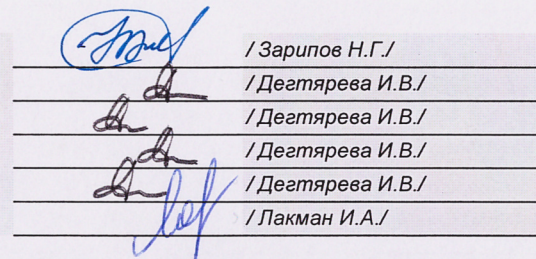 / Зарипов Н.Г./
/ Дегтярева И.В./
/ Дегтярева И.В./
/ Дегтярева И.В./
/ Дегтярева И.В./
/ Лакман И.А./